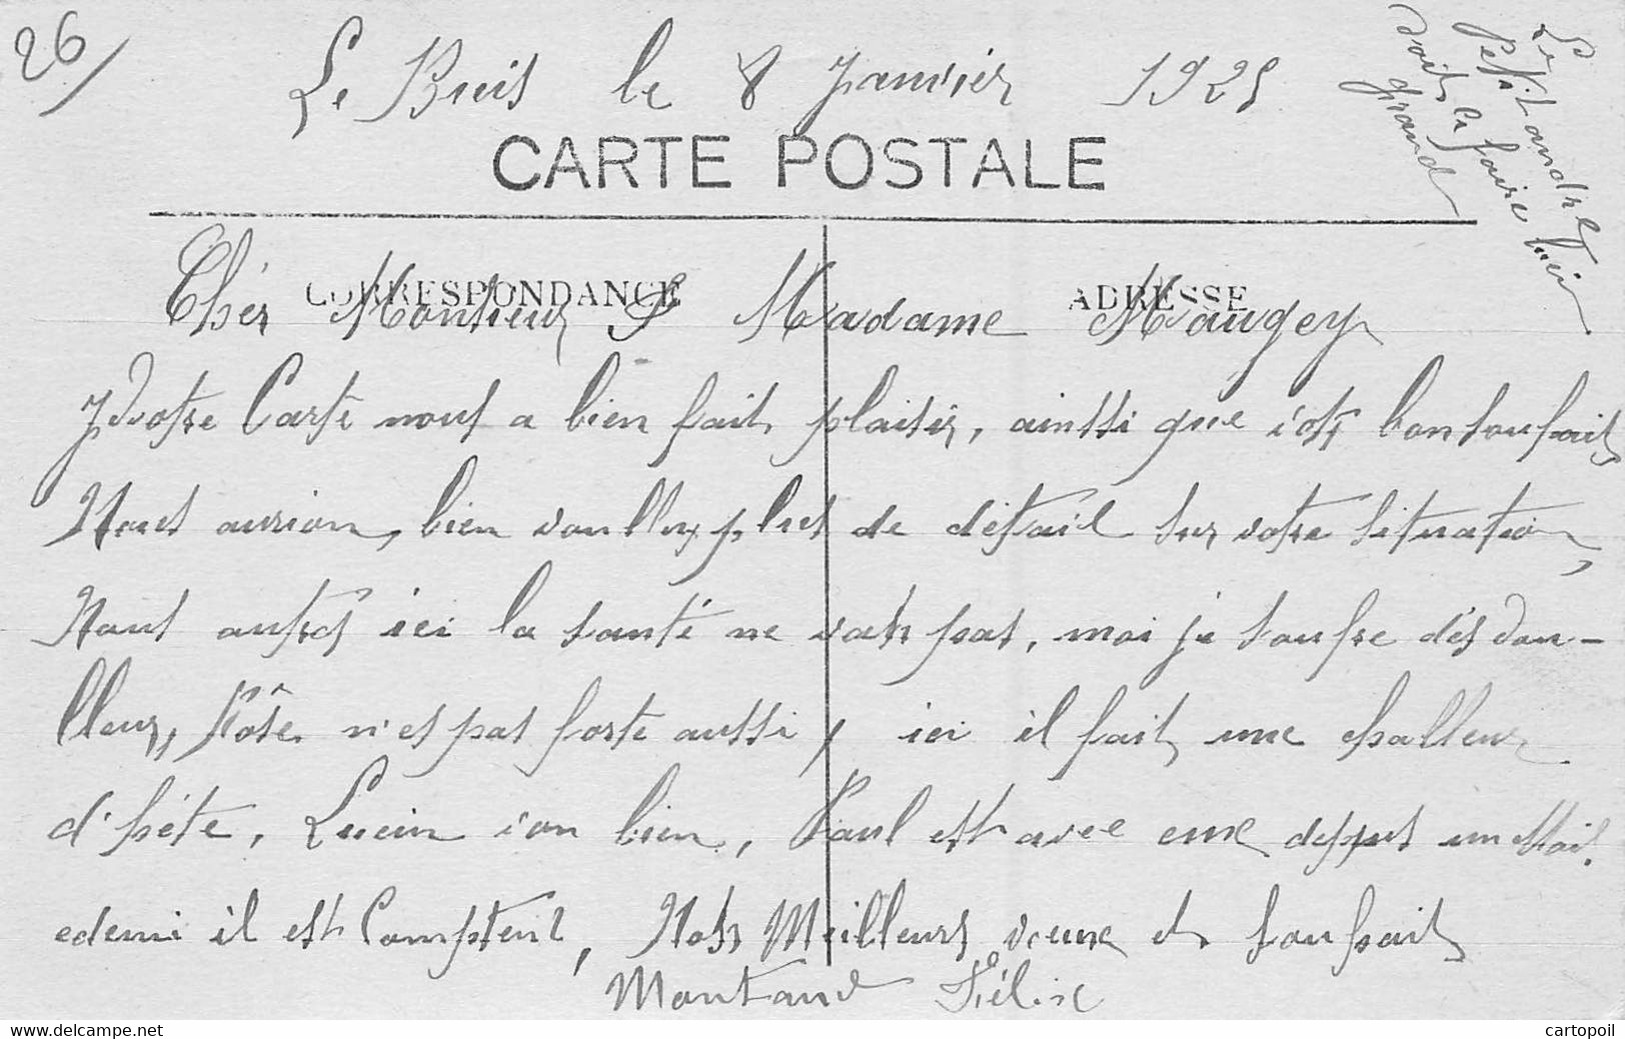 26
Le Buis le 8 Janvier 1925
Le
Petit andre
doit se faire bien
grand
CARTE POSTALE
CORRESPONDANCE
ADRESSE
Cher Monsieur & Madame Maugey
Votre Carte nous a bien fait plaisir, ainssi que vos bon souhait
Nous aurion, bien voullus plus de détail sur votre situation,
Nous autres ici la santé ne vas pas, moi je soufre des dou-
lleur, Rose n'es pas forte aussi, ici il fait une challeur
d'héte, Lucin von bien, Paul est avec eux depuis un Moi.
edemi il est Comptent, Nos Meilleurs veux et souhait
Montaud Félix
cartopoil